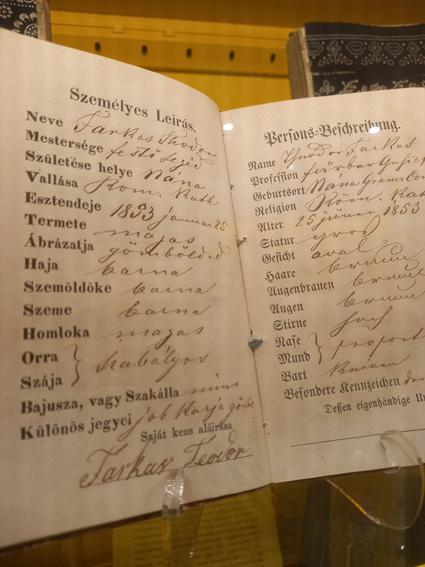 Személyes Leírás.
Neve Farkas Theodor
Mestersége festő legid
Születése helye Nána
Vallása Rom. Kath
Esztendeje 1853 januar 25
Termete magas
Ábrázatja gömbölded
Haja barna
Szemöldöke barna
Szeme barna
Homloka magas
Orra
Szája } szabályos
Bajusza, vagy Szakálla nincs
Különös jegyei job karja görbe
Saját keze aláirása
Farkas Teodor
Persons-Beschreibung.
Name Theodor Farkas
Profession Färber
Geburtsort Nana
Religion Röm. Kath
Alter 25 jäner 1853
Statur gros
Gesicht oval
Haare braun
Augenbrauen braun
Augen braun
Stirne hoch
Nase
Mund } proport
Bart keinen
Besondere Kennzeichen
Dessen eigenhändige